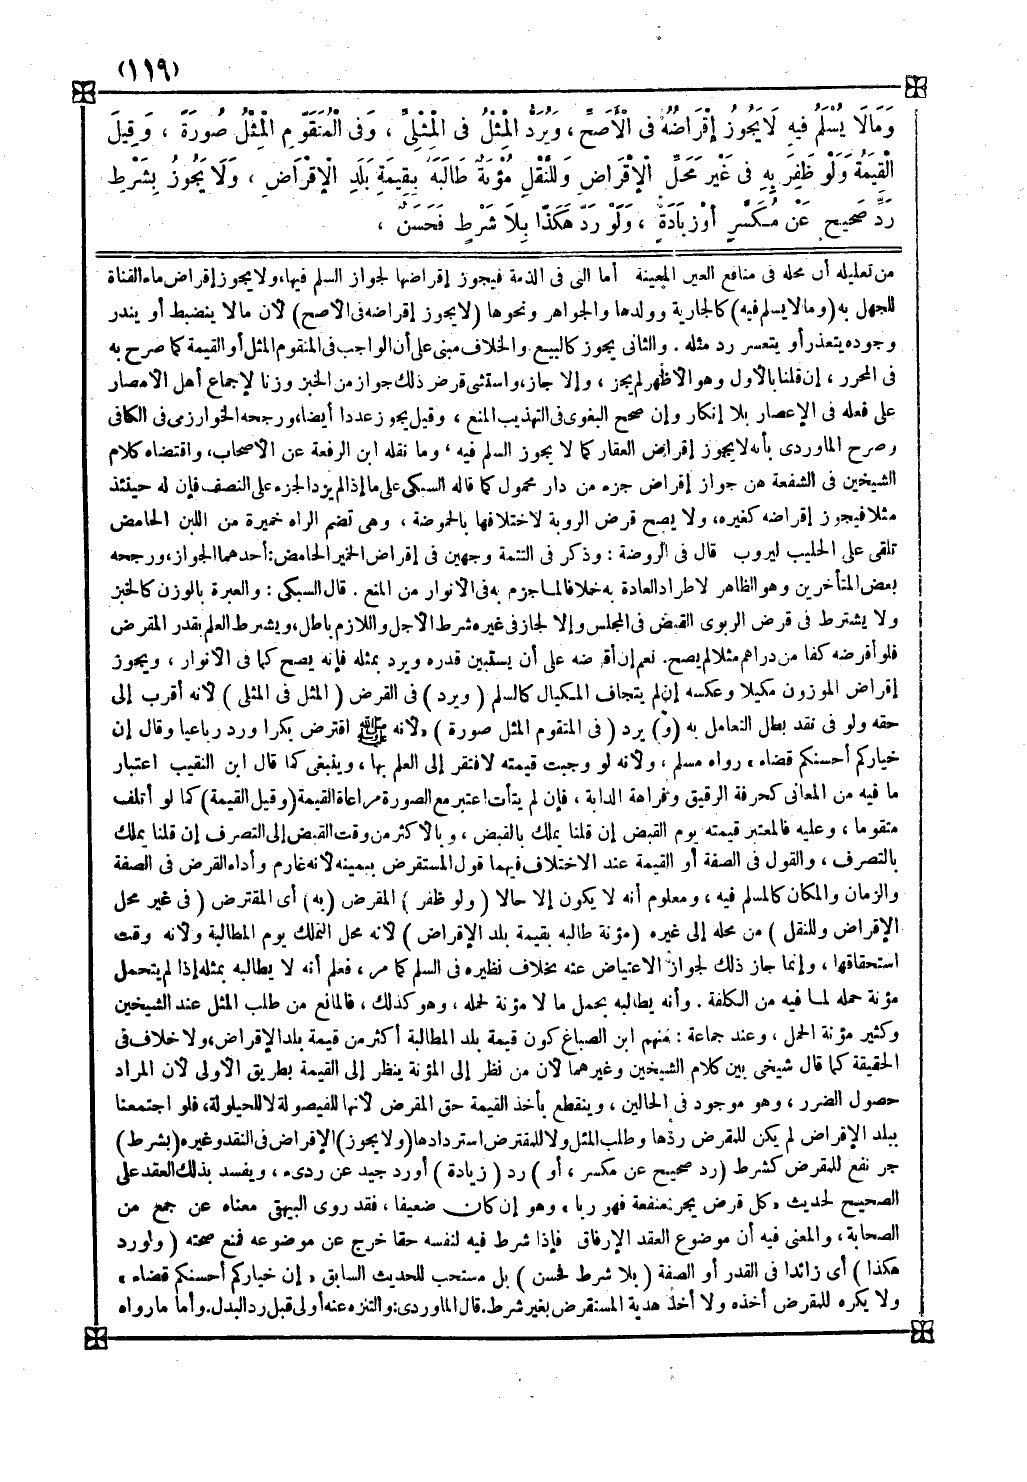 (١١٩)
وَمَالَا يُسْلَمُ فِيهِ لَايَجُوزُ إِقْرَاضُهُ فِى الْأَصَحِّ ، وَيُرَدُّ الْمِثْلُ فِى الْمِثْلِىِّ ، وَفِى الْمُتَقَوِّمِ الْمِثْلُ صُورَةً ، وَقِيلَ
الْقِيمَةُ وَلَوْ ظَفِرَ بِهِ فِى غَيْرِ مَحَلِّ الْإِقْرَاضِ وَلِلنَّقْلِ مُؤْنَةٌ طَالَبَهُ بِقِيمَةِ بَلَدِ الْإِقْرَاضِ ، وَلَا يَجُوزُ بِشَرْطِ
رَدِّ صَحِيحٍ عَنْ مُكَسَّرٍ أَوْ زِيَادَةٍ ، وَلَوْ رَدَّ هَكَذَا بِلَا شَرْطٍ فَحَسَنٌ ،
من تعليله أن محله فى منافع العين المعينة أما التى فى الذمة فيجوز إقراضها لجواز السلم فيها، ولايجوز إقراض ماء القناة
للجهل به (ومالا يسلم فيه) كالجارية وولدها والجواهر ونحوها (لايجوز إقراضه فى الأصح) لأن مالا ينضبط أو يندر
وجوده يتعذر أو يتعسر رد مثله . والثانى يجوز كالبيع والخلاف مبنى على أن الواجب فى المتقوم المثل أو القيمة كما صرح به
فى المحرر ، إن قلنا بالأول وهو الأظهر لم يجز ، وإلا جاز، واستثنى قرض ذلك جواز من الخبز وزنا لإجماع أهل الأمصار
على فعله فى الإعصار بلا إنكار وإن صحح البغوى فى التهذيب المنع ، وقيل يجوز عددا أيضا، ورجحه الخوارزمى فى الكافى
وصرح الماوردى بأنه لايجوز إقراض العقار كما لا يجوز السلم فيه ، وما نقله ابن الرفعة عن الأصحاب، واقتضاه كلام
الشيخين فى الشفعة من جواز إقراض جزء من دار محمول كما قاله السبكى على ما إذا لم يزد الجزء على النصف فإن له حينئذ
مثلا فيجوز إقراضه كغيره، ولا يصح قرض الروبة لاختلافها بالحموضة ، وهى تضم الراه خميرة من اللبن الحامض
تلقى على الحليب ليروب قال فى الروضة : وذكر فى التتمة وجهين فى إقراض الخمير الحامض: أحدهما الجواز، ورجحه
بعض المتأخرين وهو الظاهر لاطراد العادة به خلافا لما جزم به فى الأنوار من المنع . قال السبكى : والعبرة بالوزن كالخبز
ولا يشترط فى قرض الربوى القبض فى المجلس وإلا لجاز فى غيره شرط الأجل واللازم باطل، ويشترط العلم بقدر المقرض
فلو أقرضه كفا من دراهم مثلا لم يصح. نعم إن أقرضه على أن يستبين قدره ويرد بمثله فإنه يصح كما فى الأنوار ، ويجوز
إقراض الموزون مكيلا وعكسه إن لم يتجاف المكيال كالسلم ( ويرد ) فى القرض ( المثل فى المثلى ) لأنه أقرب إلى
حقه ولو فى نقد بطل التعامل به (و) يرد ( فى المتقوم المثل صورة ) «لأنه ﷺ اقترض بكرا ورد رباعيا وقال إن
خياركم أحسنكم قضاء» رواه مسلم ، ولأنه لو وجبت قيمته لافتقر إلى العلم بها ، وينبغى كما قال ابن النقيب اعتبار
ما فيه من المعانى كحرفة الرقيق وفراهة الدابة ، فإن لم يتأت اعتبر مع الصورة مراعاة القيمة (وقيل القيمة) كما لو أتلف
متقوما ، وعليه فالمعتبر قيمته يوم القبض إن قلنا يملك بالقبض ، وبالأكثر من وقت القبض إلى التصرف إن قلنا يملك
بالتصرف ، والقول فى الصفة أو القيمة عند الاختلاف فيهما قول المستقرض بيمينه لأنه غارم وأداء القرض فى الصفة
والزمان والمكان كالمسلم فيه ، ومعلوم أنه لا يكون إلا حالا ( ولو ظفر ) المقرض (به) أى المقترض ( فى غير محل
الإقراض وللنقل ) من محله إلى غيره (مؤنة طالبه بقيمة بلد الإقراض ) لأنه محل التملك يوم المطالبة ولأنه وقت
استحقاقها ، وإنما جاز ذلك لجواز الاعتياض عنه بخلاف نظيره فى السلم كما مر، فعلم أنه لا يطالبه بمثله إذا لم يتحمل
مؤنة حمله لما فيه من الكلفة . وأنه يطالبه بحمل ما لا مؤنة لحمله ، وهو كذلك ، فالمانع من طلب المثل عند الشيخين
وكثير مؤنة الحمل ، وعند جماعة : منهم ابن الصباغ كون قيمة بلد المطالبة أكثر من قيمة بلد الإقراض، ولا خلاف فى
الحقيقة كما قال شيخى بين كلام الشيخين وغيرهما لأن من نظر إلى المؤنة ينظر إلى القيمة بطريق الأولى لأن المراد
حصول الضرر ، وهو موجود فى الحالين ، وينقطع بأخذ القيمة حق المقرض لأنها للفيصولة لا للحيلولة، فلو اجتمعنا
ببلد الإقراض لم يكن للمقرض ردها وطلب المثل ولا للمقترض استردادها (ولا يجوز) الإقراض فى النقد وغيره (بشرط)
جر نفع للمقرض كشرط (رد صحيح عن مكسر ، أو ) رد ( زيادة ) أو رد جيد عن ردىء ، ويفسد بذلك العقد على
الصحيح لحديث «كل قرض يجر منفعة فهو ربا» وهو إن كان ضعيفا ، فقد روى البيهقى معناه عن جمع من
الصحابة ، والمعنى فيه أن موضوع العقد الإرفاق فإذا شرط فيه لنفسه حقا خرج عن موضوعه فمنع صحته ( ولو رد
هكذا ) أى زائدا فى القدر أو الصفة ( بلا شرط فحسن ) بل مستحب للحديث السابق «إن خياركم أحسنكم قضاء»
ولا يكره للمقرض أخذه ولا أخذ هدية المستقرض بغير شرط. قال الماوردى: والتنزه عنه أولى قبل رد البدل. وأما مارواه